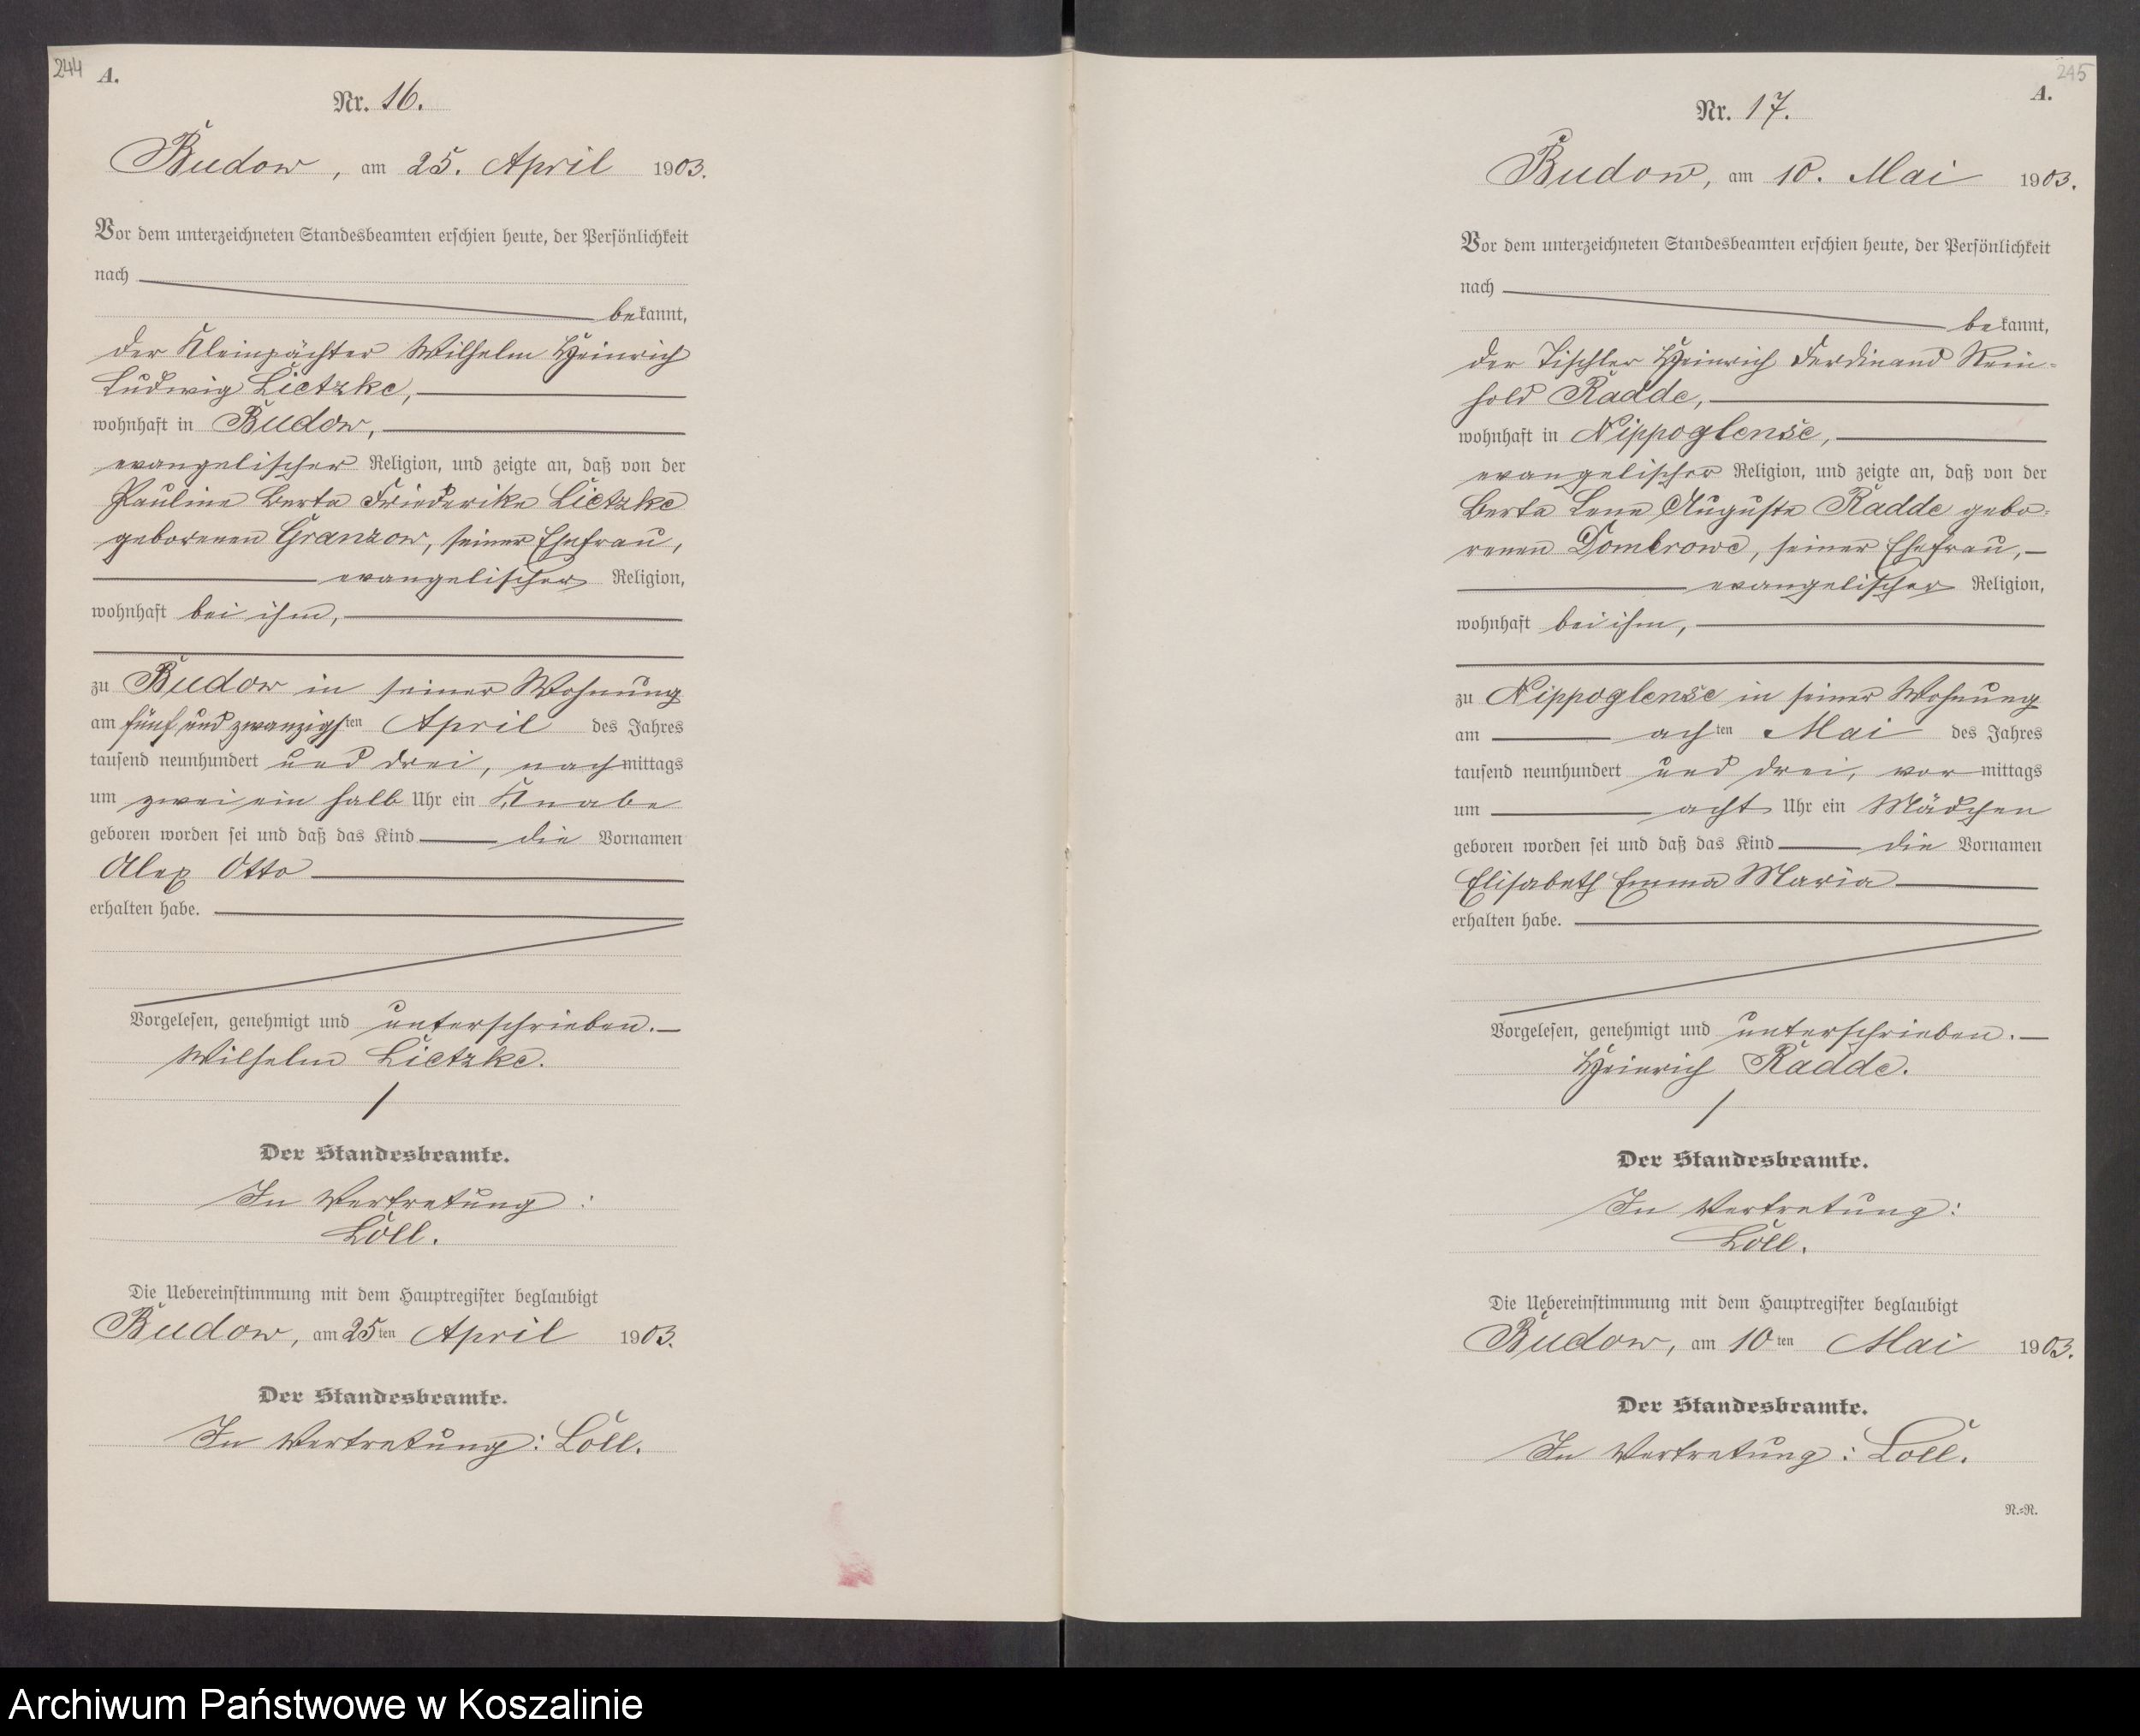 244
A.
Nr. 16.
Budow, am 25. April 1903.
Vor dem unterzeichneten Standesbeamten erschien heute, der Persönlichkeit
nach
bekannt,
der Kleinpächter Wilhelm Heinrich
Ludwig Lietzke,
wohnhaft in Budow,
evangelischer Religion, und zeigte an, daß von der
Pauline Berta Friederike Lietzke
geborenen Granzow, seiner Ehefrau,
evangelischer Religion,
wohnhaft bei ihm,
zu Budow in seiner Wohnung
am fünf und zwanzigsten April des Jahres
tausend neunhundert und drei, nachmittags
um zwei ein halb Uhr ein Knabe
geboren worden sei und daß das Kind die Vornamen
Alex Otto
erhalten habe.
Vorgelesen, genehmigt und unterschrieben.
Wilhelm Lietzke.
Der Standesbeamte.
In Vertretung:
Löll.
Die Uebereinstimmung mit dem Hauptregister beglaubigt
Budow, am 25ten April 1903.
Der Standesbeamte.
In Vertretung: Löll.
245
A.
Nr. 17.
Budow, am 10. Mai 1903.
Vor dem unterzeichneten Standesbeamten erschien heute, der Persönlichkeit
nach
bekannt,
der Tischler Heinrich Ferdinand Rein-
hold Radde,
wohnhaft in Nippoglense,
evangelischer Religion, und zeigte an, daß von der
Berta Lene Auguste Radde gebo-
renen Dombrowe, seiner Ehefrau,
evangelischer Religion,
wohnhaft bei ihm,
zu Nippoglense in seiner Wohnung
am achten Mai des Jahres
tausend neunhundert und drei, vormittags
um acht Uhr ein Mädchen
geboren worden sei und daß das Kind die Vornamen
Elisabeth Emma Maria
erhalten habe.
Vorgelesen, genehmigt und unterschrieben.
Heinrich Radde.
Der Standesbeamte.
In Vertretung:
Löll.
Die Uebereinstimmung mit dem Hauptregister beglaubigt
Budow, am 10ten Mai 1903.
Der Standesbeamte.
In Vertretung: Löll.
R.=R.
Archiwum Państwowe w Koszalinie